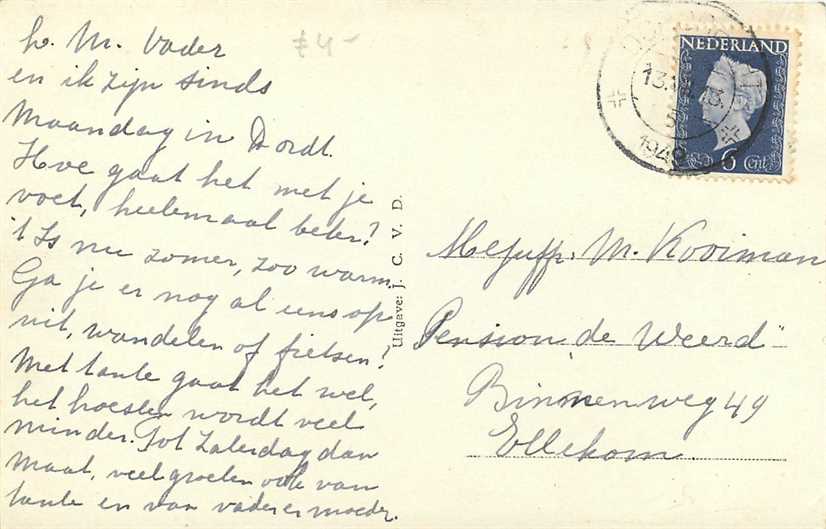 L. M. Vader
en ik zijn sinds
Maandag in Dordt.
Hoe gaat het met je
voet, heelemaal beter?
't Is nu zomer, zoo warm.
Ga je er nog al eens op
uit, wandelen of fietsen?
Met tante gaat het wel,
het hoesten wordt veel
minder. Tot Zaterdag dan
Maat, veel groeten ook van
tante en van vader en moeder.
£ 4-
Uitgeve: J. C. V. D.
NEDERLAND
6 Cnt
13. 13.
5
1948
Mejuffr. M. Kooiman
Pension "de Weerd"
Binnenweg 49
Ellekom.